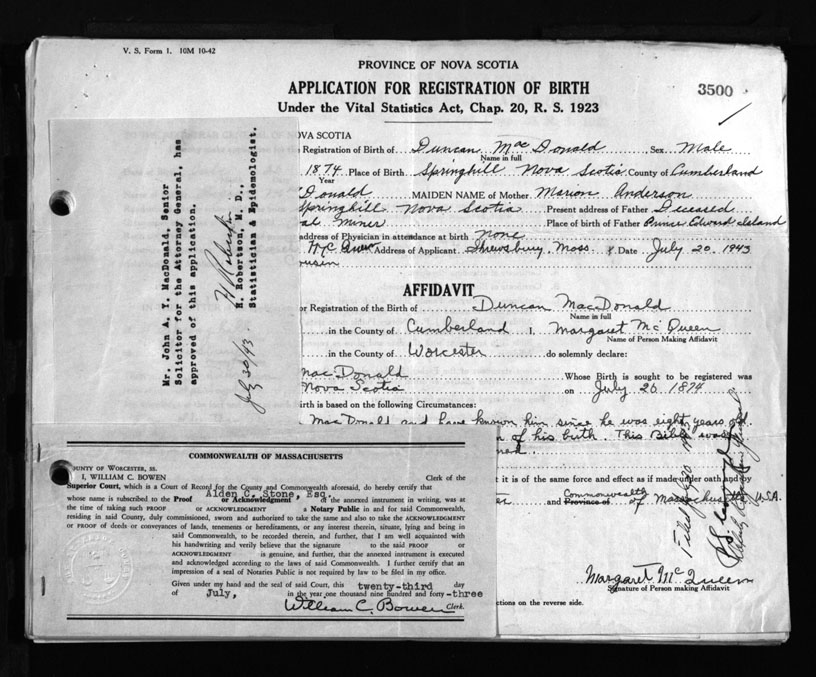 V. S. Form 1. 10M 10-42
PROVINCE OF NOVA SCOTIA
APPLICATION FOR REGISTRATION OF BIRTH
3500
Under the Vital Statistics Act, Chap. 20, R. S. 1923
NOVA SCOTIA
Registration of Birth of Duncan MacDonald Sex Male
Name in full
1874 Place of Birth Springhill Nova Scotia County of Cumberland
Year
Donald MAIDEN NAME of Mother Marion Anderson
Springhill Nova Scotia Present address of Father Deceased
al Miner Place of birth of Father Prince Edward Island
address of Physician in attendance at birth None
Address of Applicant Shrewsbury Mass Date July 20 1943
ousin
AFFIDAVIT
or Registration of the Birth of Duncan MacDonald
Name in full
in the County of Cumberland I, Margaret McQueen
Name of Person Making Affidavit
in the County of Worcester do solemnly declare:
MacDonald Whose Birth is sought to be registered was
Nova Scotia on July 26 1874
irth is based on the following Circumstances:
MacDonald and have known him since he was eight years old.
n of his birth. This Bible was
t it is of the same force and effect as if made under oath and by
and Province of Commonwealth of Massachusetts U.S.A.
Margaret McQueen
Signature of Person making Affidavit
ctions on the reverse side.
Mr. John A. Y. MacDonald, Senior
Solicitor for the Attorney General, has
approved of this application.
H Robertson
H. Robertson, M. D.,
Statistician & Epidemiologist.
July 30/43
COMMONWEALTH OF MASSACHUSETTS
COUNTY OF WORCESTER, SS.
I, WILLIAM C. BOWEN Clerk of the
Superior Court, which is a Court of Record for the County and Commonwealth aforesaid, do hereby certify that
Alden C. Stone, Esq.
whose name is subscribed to the Proof or Acknowledgment of the annexed instrument in writing, was at
the time of taking such PROOF or ACKNOWLEDGMENT a Notary Public in and for said Commonwealth,
residing in said County, duly commissioned, sworn and authorized to take the same and also to take the ACKNOWLEDGMENT
or PROOF of deeds or conveyances of lands, tenements or hereditaments, or any interest therein, situate, lying and being in
said Commonwealth, to be recorded therein, and further, that I am well acquainted with
his handwriting and verily believe that the signature to the said PROOF or
ACKNOWLEDGMENT is genuine, and further, that the annexed instrument is executed
and acknowledged according to the laws of said Commonwealth. I further certify that an
impression of a seal of Notaries Public is not required by law to be filed in my office.
Given under my hand and the seal of said Court, this twenty-third day
of July, in the year one thousand nine hundred and forty-three
William C. Bowen Clerk.